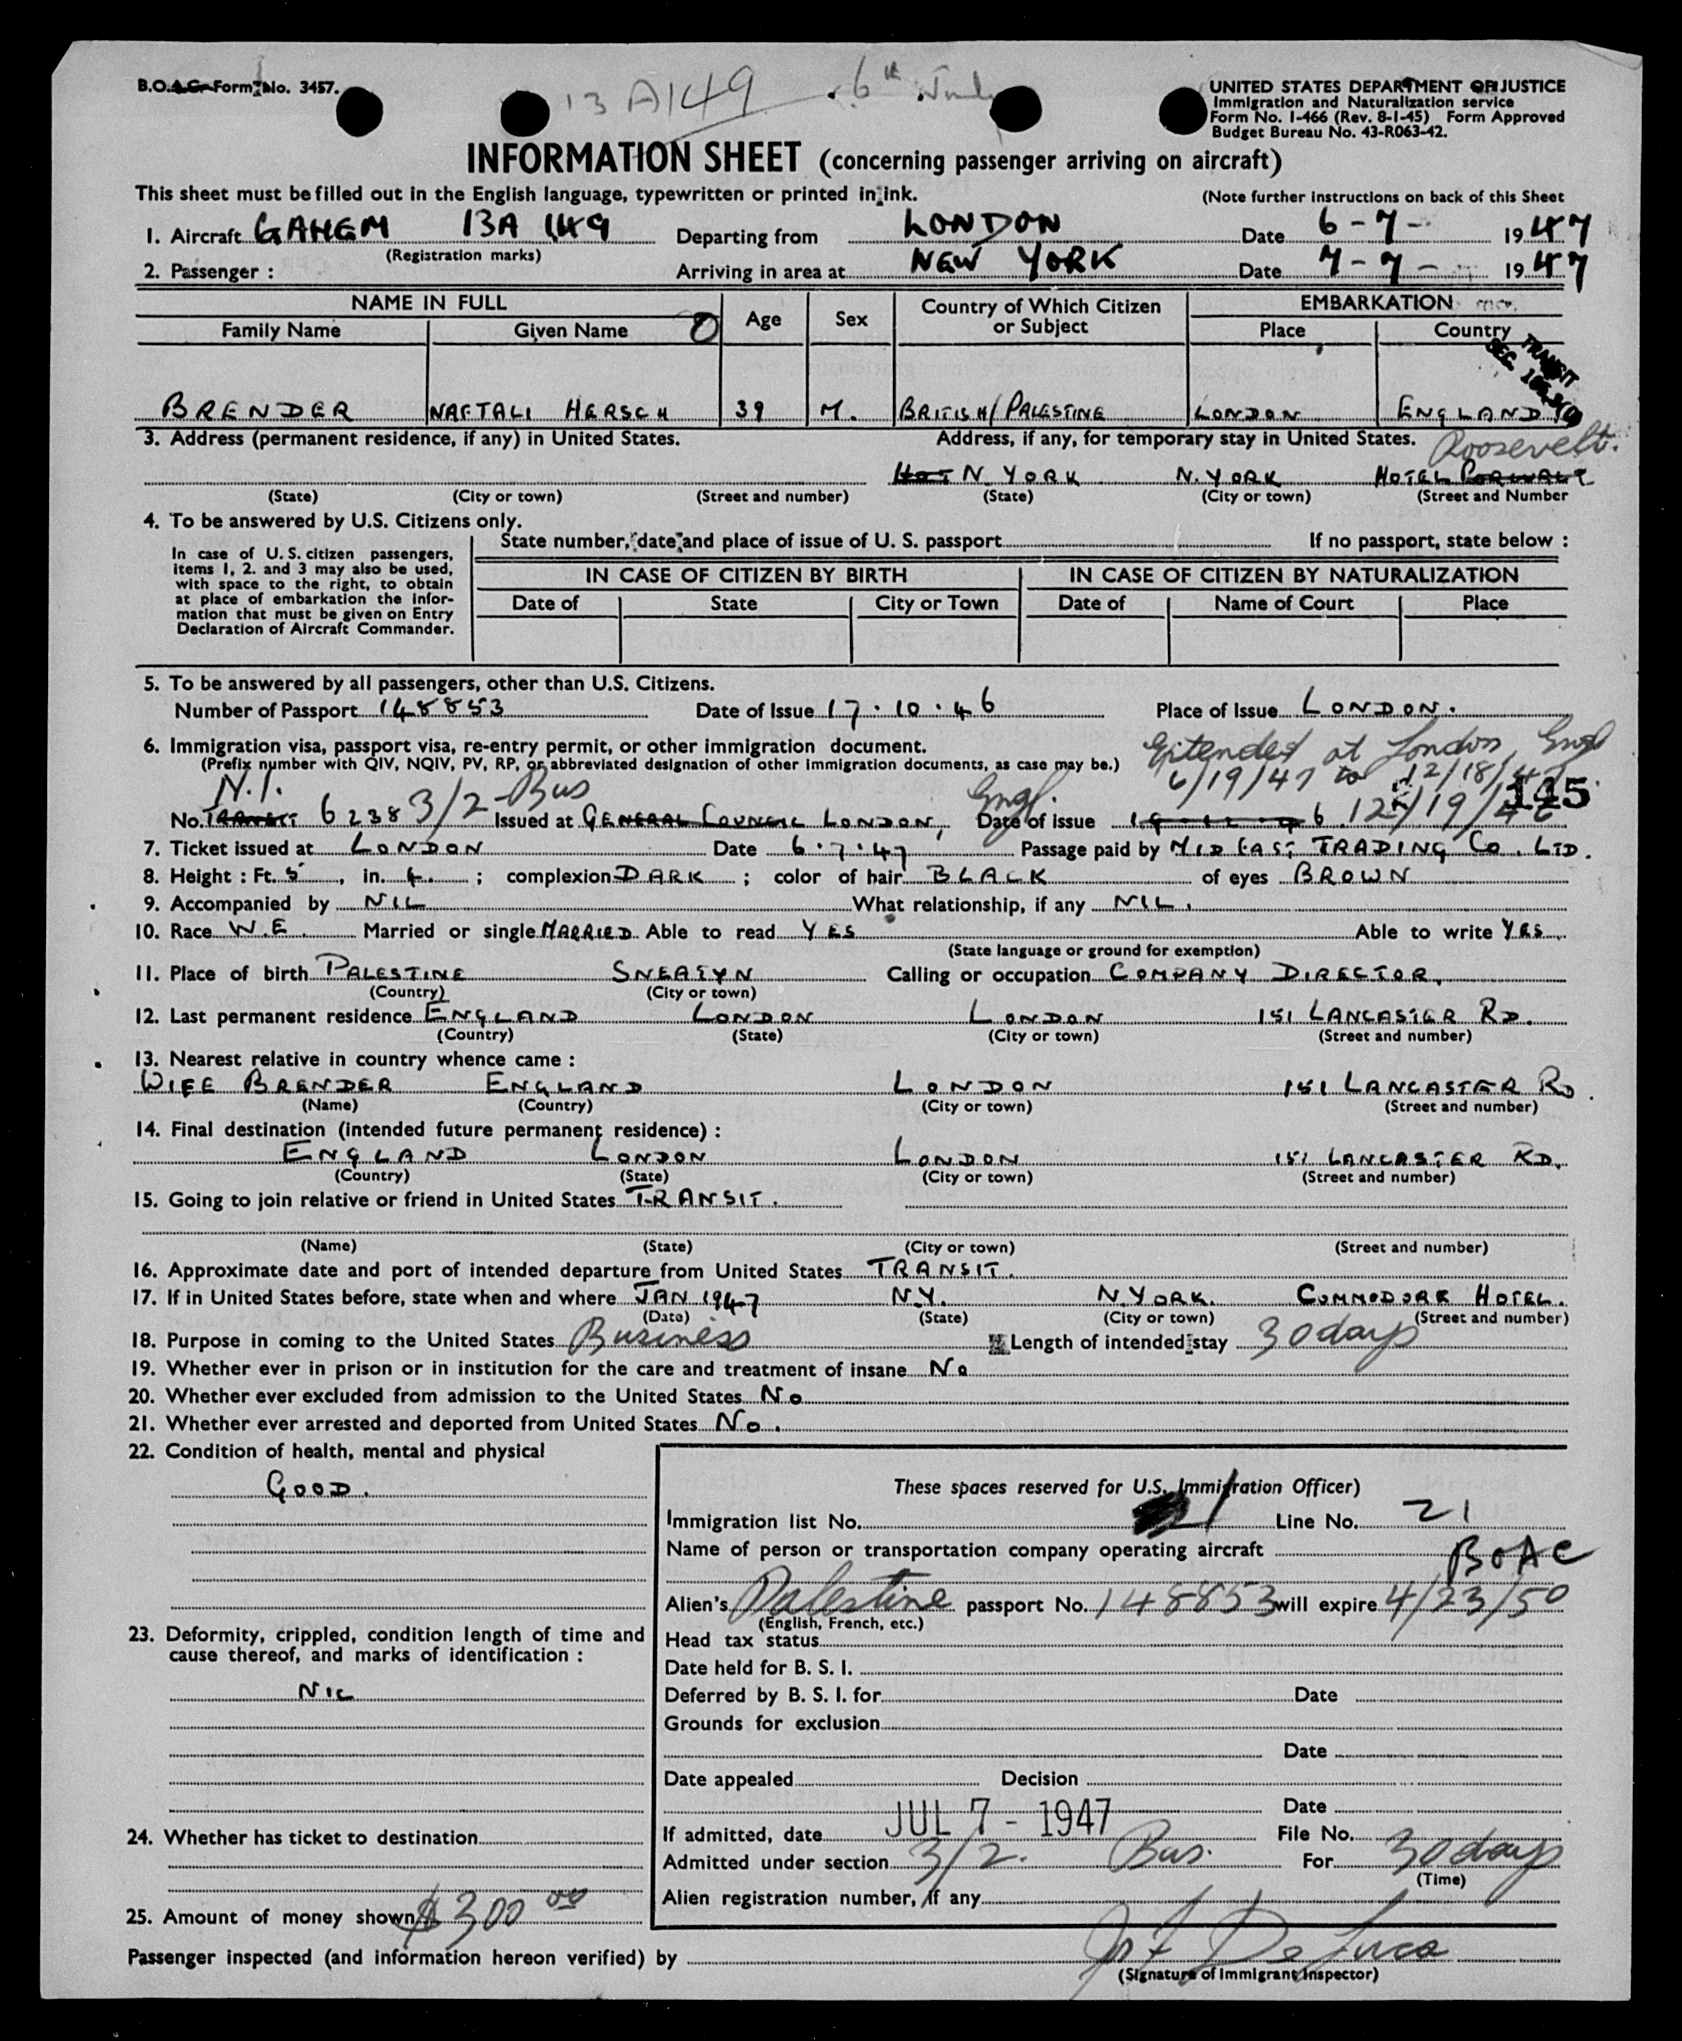 B.O.A.C. Form No. 3457.
13 A149 6th July
UNITED STATES DEPARTMENT OF JUSTICE
Immigration and Naturalization service
Form No. I-466 (Rev. 8-1-45) Form Approved
Budget Bureau No. 43-R063-42.
INFORMATION SHEET (concerning passenger arriving on aircraft)
This sheet must be filled out in the English language, typewritten or printed in ink. (Note further instructions on back of this Sheet
1. Aircraft GAHEM BA 149 Departing from LONDON Date 6-7- 1947
(Registration marks)
2. Passenger : Arriving in area at NEW YORK Date 7-7- 1947
NAME IN FULL Age Sex Country of Which Citizen or Subject EMBARKATION
Family Name Given Name Place Country
TRANSIT
SEC.
BRENDER NAFTALI HERSCH 39 M. BRITISH/PALESTINE LONDON ENGLAND
3. Address (permanent residence, if any) in United States. Address, if any, for temporary stay in United States. Roosevelt.
HOT N. YORK N. YORK HOTEL
(State) (City or town) (Street and number) (State) (City or town) (Street and Number
4. To be answered by U.S. Citizens only.
State number, date and place of issue of U. S. passport If no passport, state below :
In case of U. S. citizen passengers,
items 1, 2. and 3 may also be used,
with space to the right, to obtain
at place of embarkation the infor-
mation that must be given on Entry
Declaration of Aircraft Commander.
IN CASE OF CITIZEN BY BIRTH IN CASE OF CITIZEN BY NATURALIZATION
Date of State City or Town Date of Name of Court Place
5. To be answered by all passengers, other than U.S. Citizens.
Number of Passport 148853 Date of Issue 17.10.46 Place of Issue LONDON.
6. Immigration visa, passport visa, re-entry permit, or other immigration document. Extended at London, Engl
(Prefix number with QIV, NQIV, PV, RP, or abbreviated designation of other immigration documents, as case may be.) 6/19/47 to 12/18/47
N.I. 3/2-Bus Engl. 145
No. TRANSIT 6238 Issued at GENERAL COUNCIL LONDON, Date of issue 12/19/46
7. Ticket issued at LONDON Date 6.7.47 Passage paid by MID EAST TRADING CO. LTD.
8. Height : Ft. 5, in. 4. ; complexion DARK ; color of hair BLACK of eyes BROWN
9. Accompanied by NIL What relationship, if any NIL.
10. Race W.E. Married or single MARRIED Able to read YES Able to write YES
(State language or ground for exemption)
11. Place of birth PALESTINE SNEATYN Calling or occupation COMPANY DIRECTOR,
(Country) (City or town)
12. Last permanent residence ENGLAND LONDON LONDON 151 LANCASTER RD.
(Country) (State) (City or town) (Street and number)
13. Nearest relative in country whence came :
WIFE BRENDER ENGLAND LONDON 151 LANCASTER RD.
(Name) (Country) (City or town) (Street and number)
14. Final destination (intended future permanent residence) :
ENGLAND LONDON LONDON 151 LANCASTER RD.
(Country) (State) (City or town) (Street and number)
15. Going to join relative or friend in United States TRANSIT.
(Name) (State) (City or town) (Street and number)
16. Approximate date and port of intended departure from United States TRANSIT.
17. If in United States before, state when and where JAN 1947 N.Y. N. YORK. COMMODORE HOTEL.
(Date) (State) (City or town) (Street and number)
18. Purpose in coming to the United States Business Length of intended stay 30 days
19. Whether ever in prison or in institution for the care and treatment of insane No
20. Whether ever excluded from admission to the United States No
21. Whether ever arrested and deported from United States No.
22. Condition of health, mental and physical
GOOD.
These spaces reserved for U.S. Immigration Officer)
Immigration list No. Line No. 21
Name of person or transportation company operating aircraft
BOAC
Alien's Palestine passport No. 148853 will expire 4/23/50
(English, French, etc.)
23. Deformity, crippled, condition length of time and
cause thereof, and marks of identification :
NIL
Head tax status
Date held for B. S. I.
Deferred by B. S. I. for Date
Grounds for exclusion
Date
Date appealed Decision
Date
24. Whether has ticket to destination
If admitted, date JUL 7 - 1947 File No.
Admitted under section 3/2. Bus. For 30 days
(Time)
Alien registration number, if any
25. Amount of money shown $300 00
Passenger inspected (and information hereon verified) by Jos F De Luca
(Signature of Immigrant Inspector)